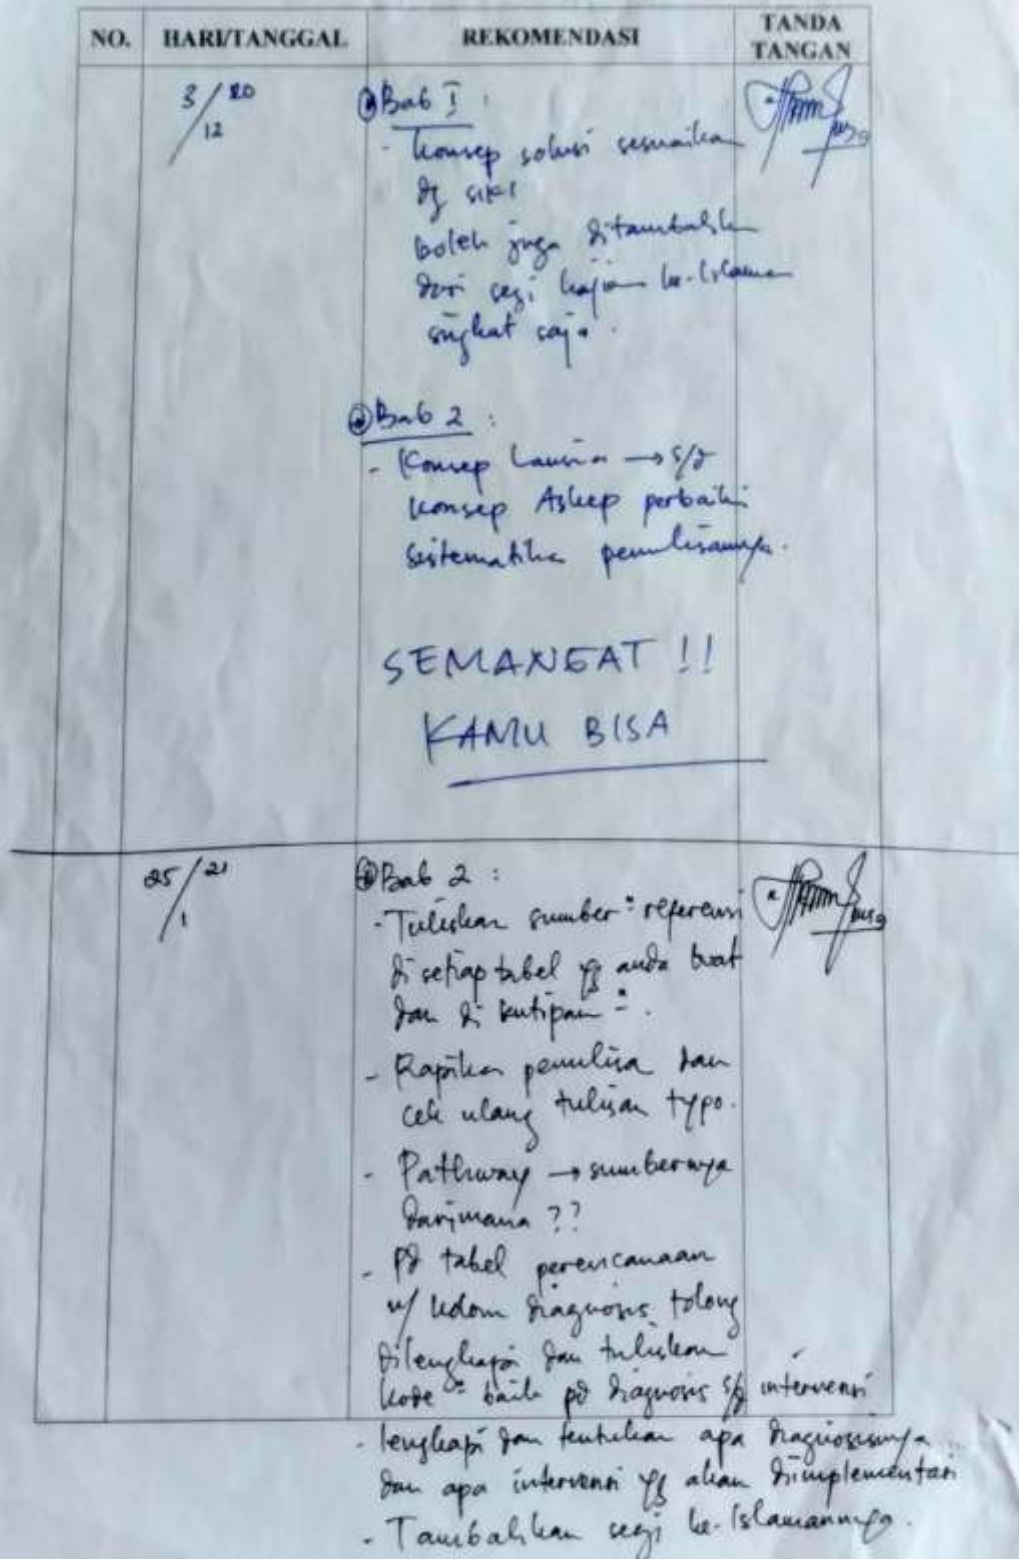 NO. HARI/TANGGAL REKOMENDASI TANDA TANGAN
3/12 20
Bab I :
- Konsep solusi sesuaikan
dg SIKI
boleh juga ditambahkan
dari segi kajian ke-Islaman
singkat saja.
Bab 2 :
- Konsep Lansia → s/d
konsep Askep perbaiki
sistematika penulisannya.
SEMANGAT !!
KAMU BISA
25/1 21
Bab 2 :
- Tuliskan sumber² referensi
di setiap tabel yg anda buat
dan di kutipan².
- Rapikan penulisa dan
cek ulang tulisan typo.
- Pathway → sumbernya
darimana ??
- pd tabel perencanaan
u/ kolom diagnosis tolong
dilengkapi dan tuliskan
kode² baik pd diagnosis s/d intervensi
- lengkapi dan tentukan apa diagnosisnya
dan apa intervensi yg akan diimplementasi
- Tambahkan segi ke-Islamannya.